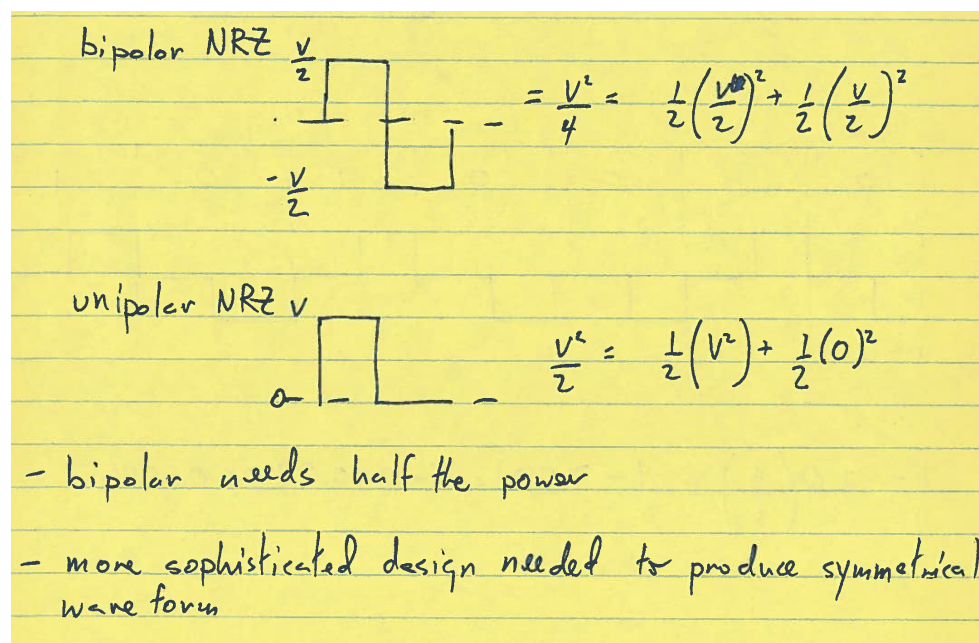 bipolar NRZ V/2
= V²/4 = 1/2(V/2)² + 1/2(V/2)²
- V/2
unipolar NRZ V
V²/2 = 1/2(V²) + 1/2(0)²
0
- bipolar needs half the power
- more sophisticated design needed to produce symmetrical
wave form